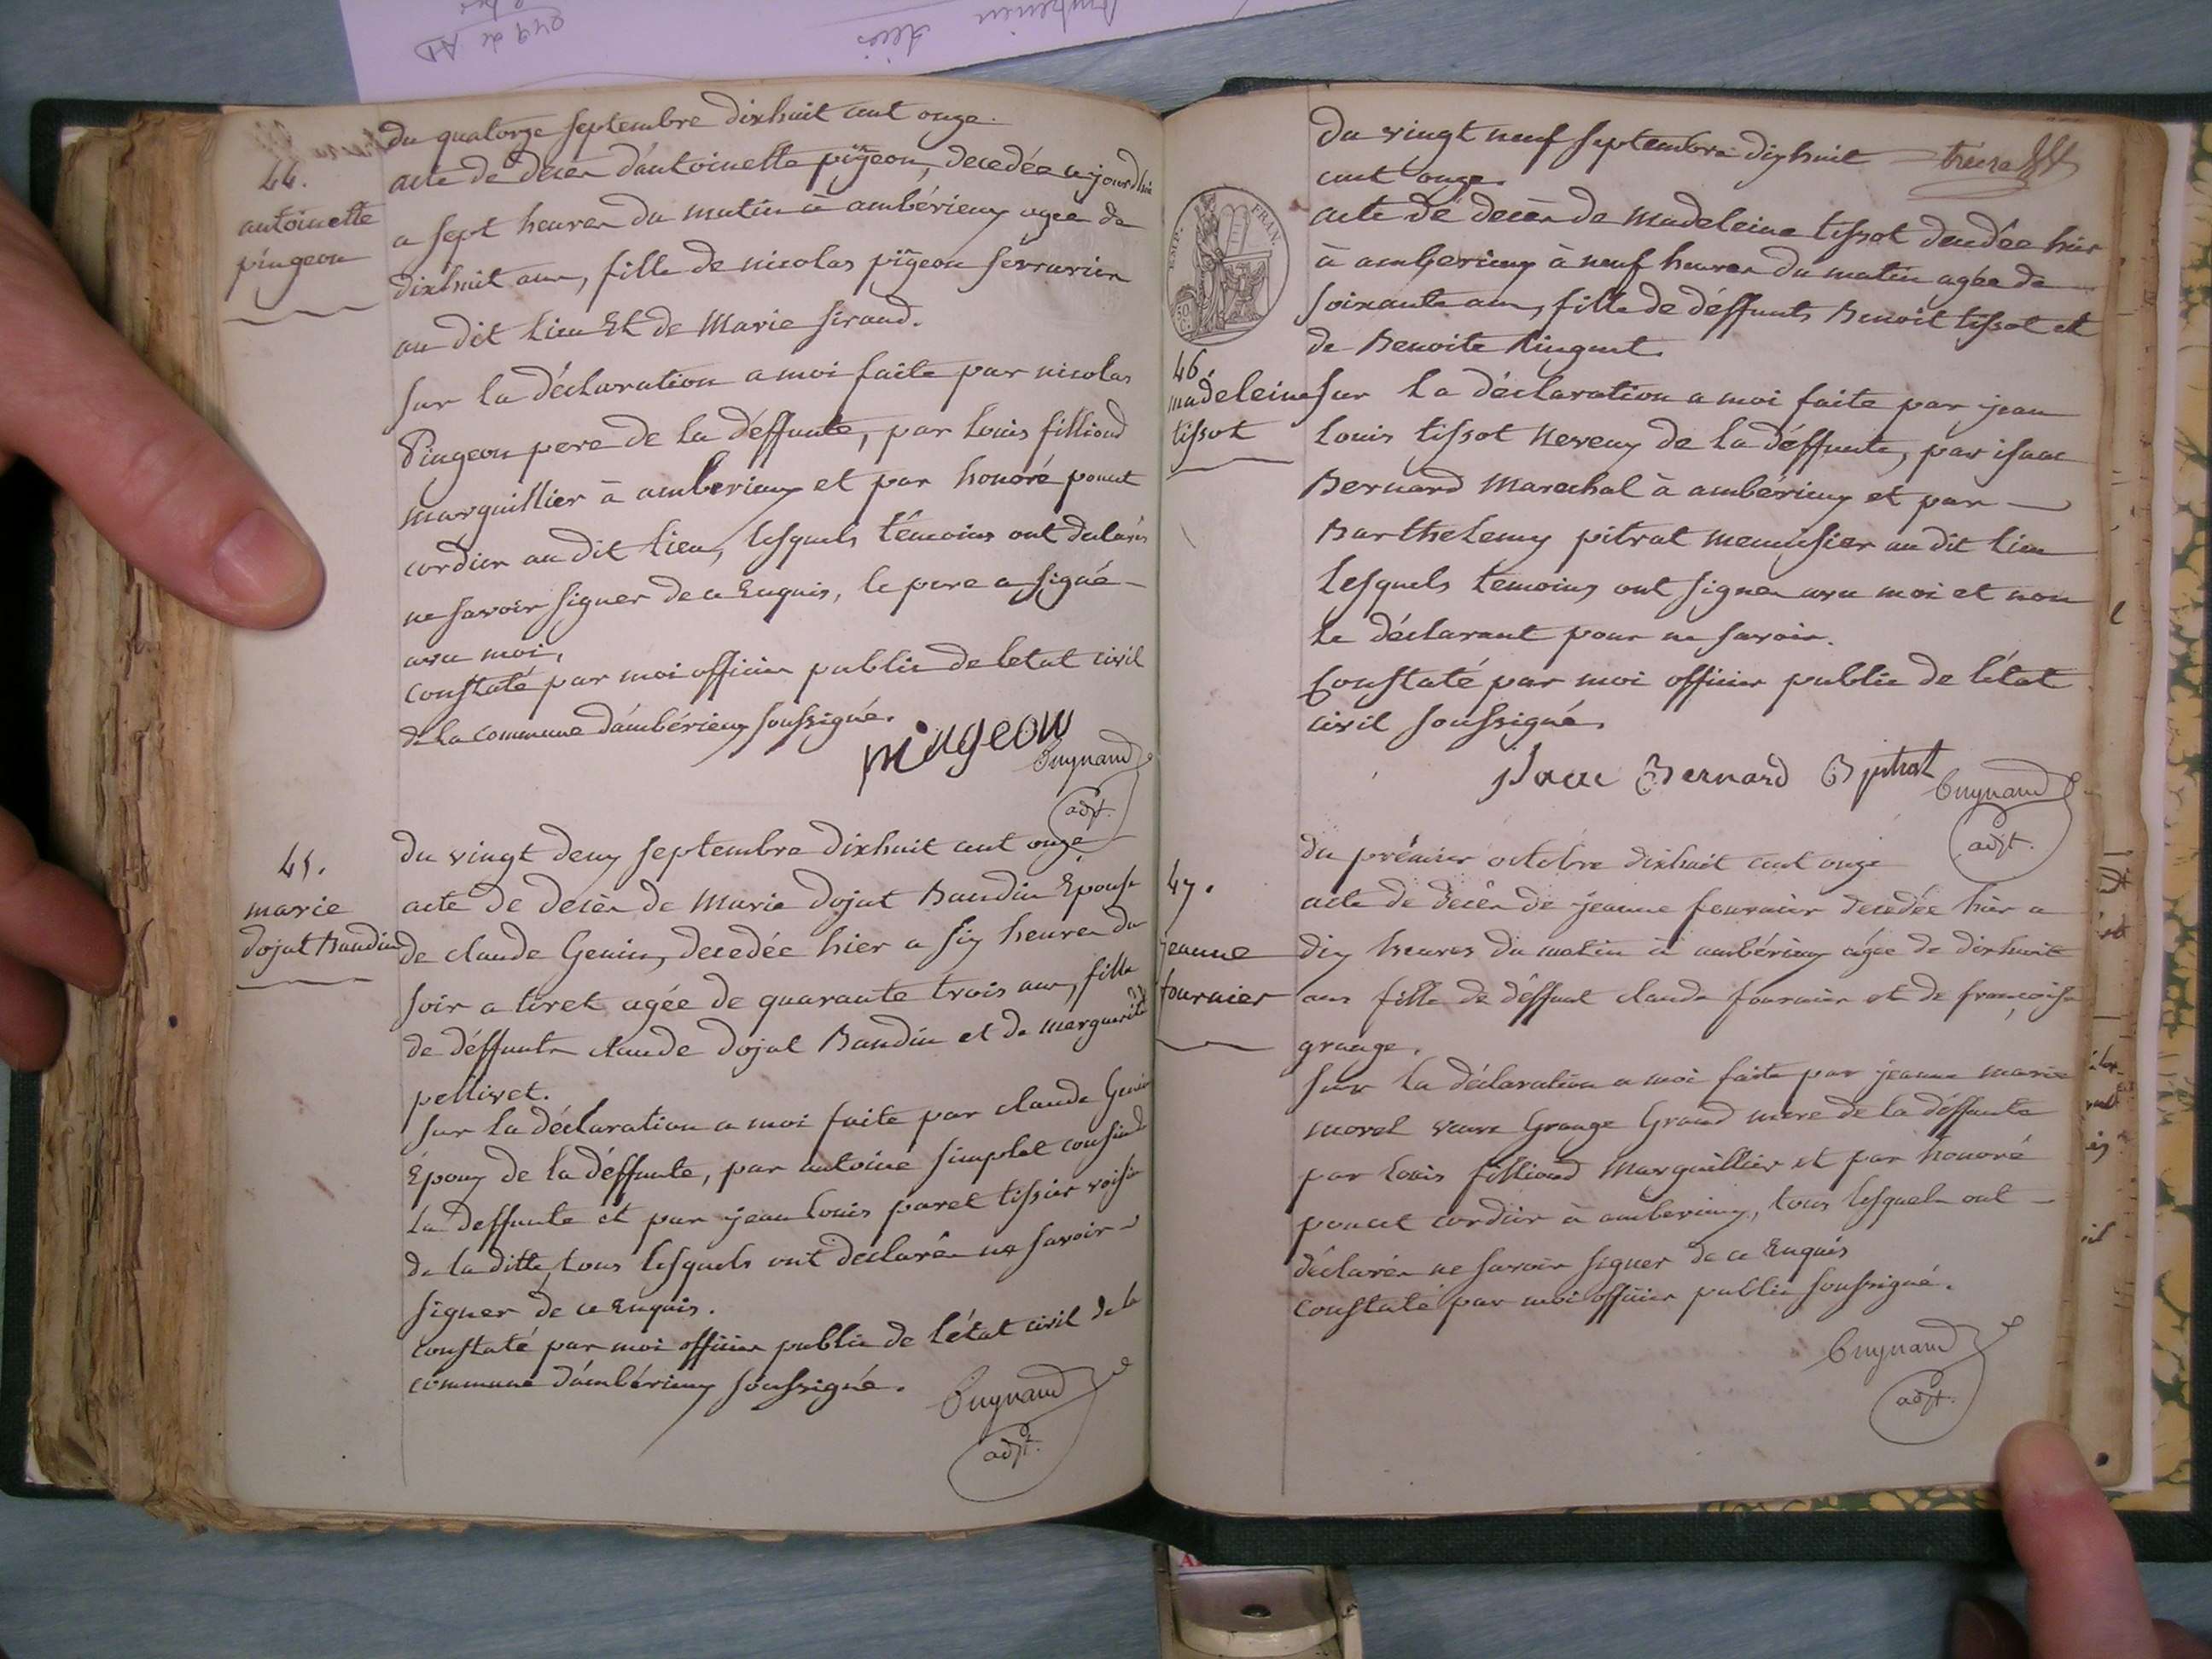 du quatorze septembre dixhuit cent onze.
44.
antoinette
pingeon
acte de decès d'antoinette pingeon, decedée cejourdhui
a sept heures du matin à ambérieux agée de
dixhuit ans, fille de nicolas pingeon serrurier
au dit lieu Et de Marie siraud.
sur la déclaration a moi faite par nicolas
Pingeon pere de la déffunte, par louis filliond
marguillier à amberieux et par honoré poncet
cordier au dit lieu, lesquels témoins ont declarés
ne savoir signer de ce Enquis, le pere a signé
avec moi,
constaté par moi officier public de letat civil
de la commune d'ambérieux soussigné.
pingeon
Guynand
adjt.
45.
marie
dojat Baudin
du vingt deux septembre dixhuit cent onze
acte de decès de Marie dojat Baudin Epouse
de claude Genin, decedée hier a six heures du
soir a tiret agée de quarante trois ans, fille
de déffunts claude dojat Baudin et de marguerite
pellivet.
sur la déclaration a moi faite par claude Genin
Époux de la déffunte, par antoine simplet cousin de
la deffunte et par jean louis paret tissier voisin
de la ditte, tous lesquels ont declarés ne savoir
signer de ce Enquis.
constaté par moi officier public de l'état civil de la
commune d'ambérieux soussigné.
Guynand
adjt.
du vingt neuf septembre dixhuit
cent onze.
acte de decès de madeleine tissot decedée hier
à amberieux à neuf heures du matin agée de
soixante ans, fille de déffunts Benoit tissot et
de Benoite
46.
madeleine
tissot
sur la déclaration a moi faite par jean
louis tissot neveux de la déffunte, par isaac
Bernard Marechal à ambérieux et par
Barthelemy pitrat menuisier au dit lieu
lesquels temoins ont signer avec moi et non
le déclarant pour ne savoir.
Constaté par moi officier public de l'état
civil soussigné.
isaac Bernard B pitrat
Guynand
adjt.
47.
jeanne
fournier
du prémier octobre dixhuit cent onze
acte de decès de jeanne fournier decedée hier a
dix heures du matin à ambérieux agée de dixhuit
ans fille de déffunt claude fournier et de françoise
grange.
sur la déclaration a moi faite par jeanne marie
morel veuve Grange Grand mere de la déffunte
par louis filliond Marguillier et par honoré
poncet cordier à amberieux, tous lesquels ont
déclarés ne savoir signer de ce Enquis
constaté par moi officier public soussigné.
Guynand
adjt.